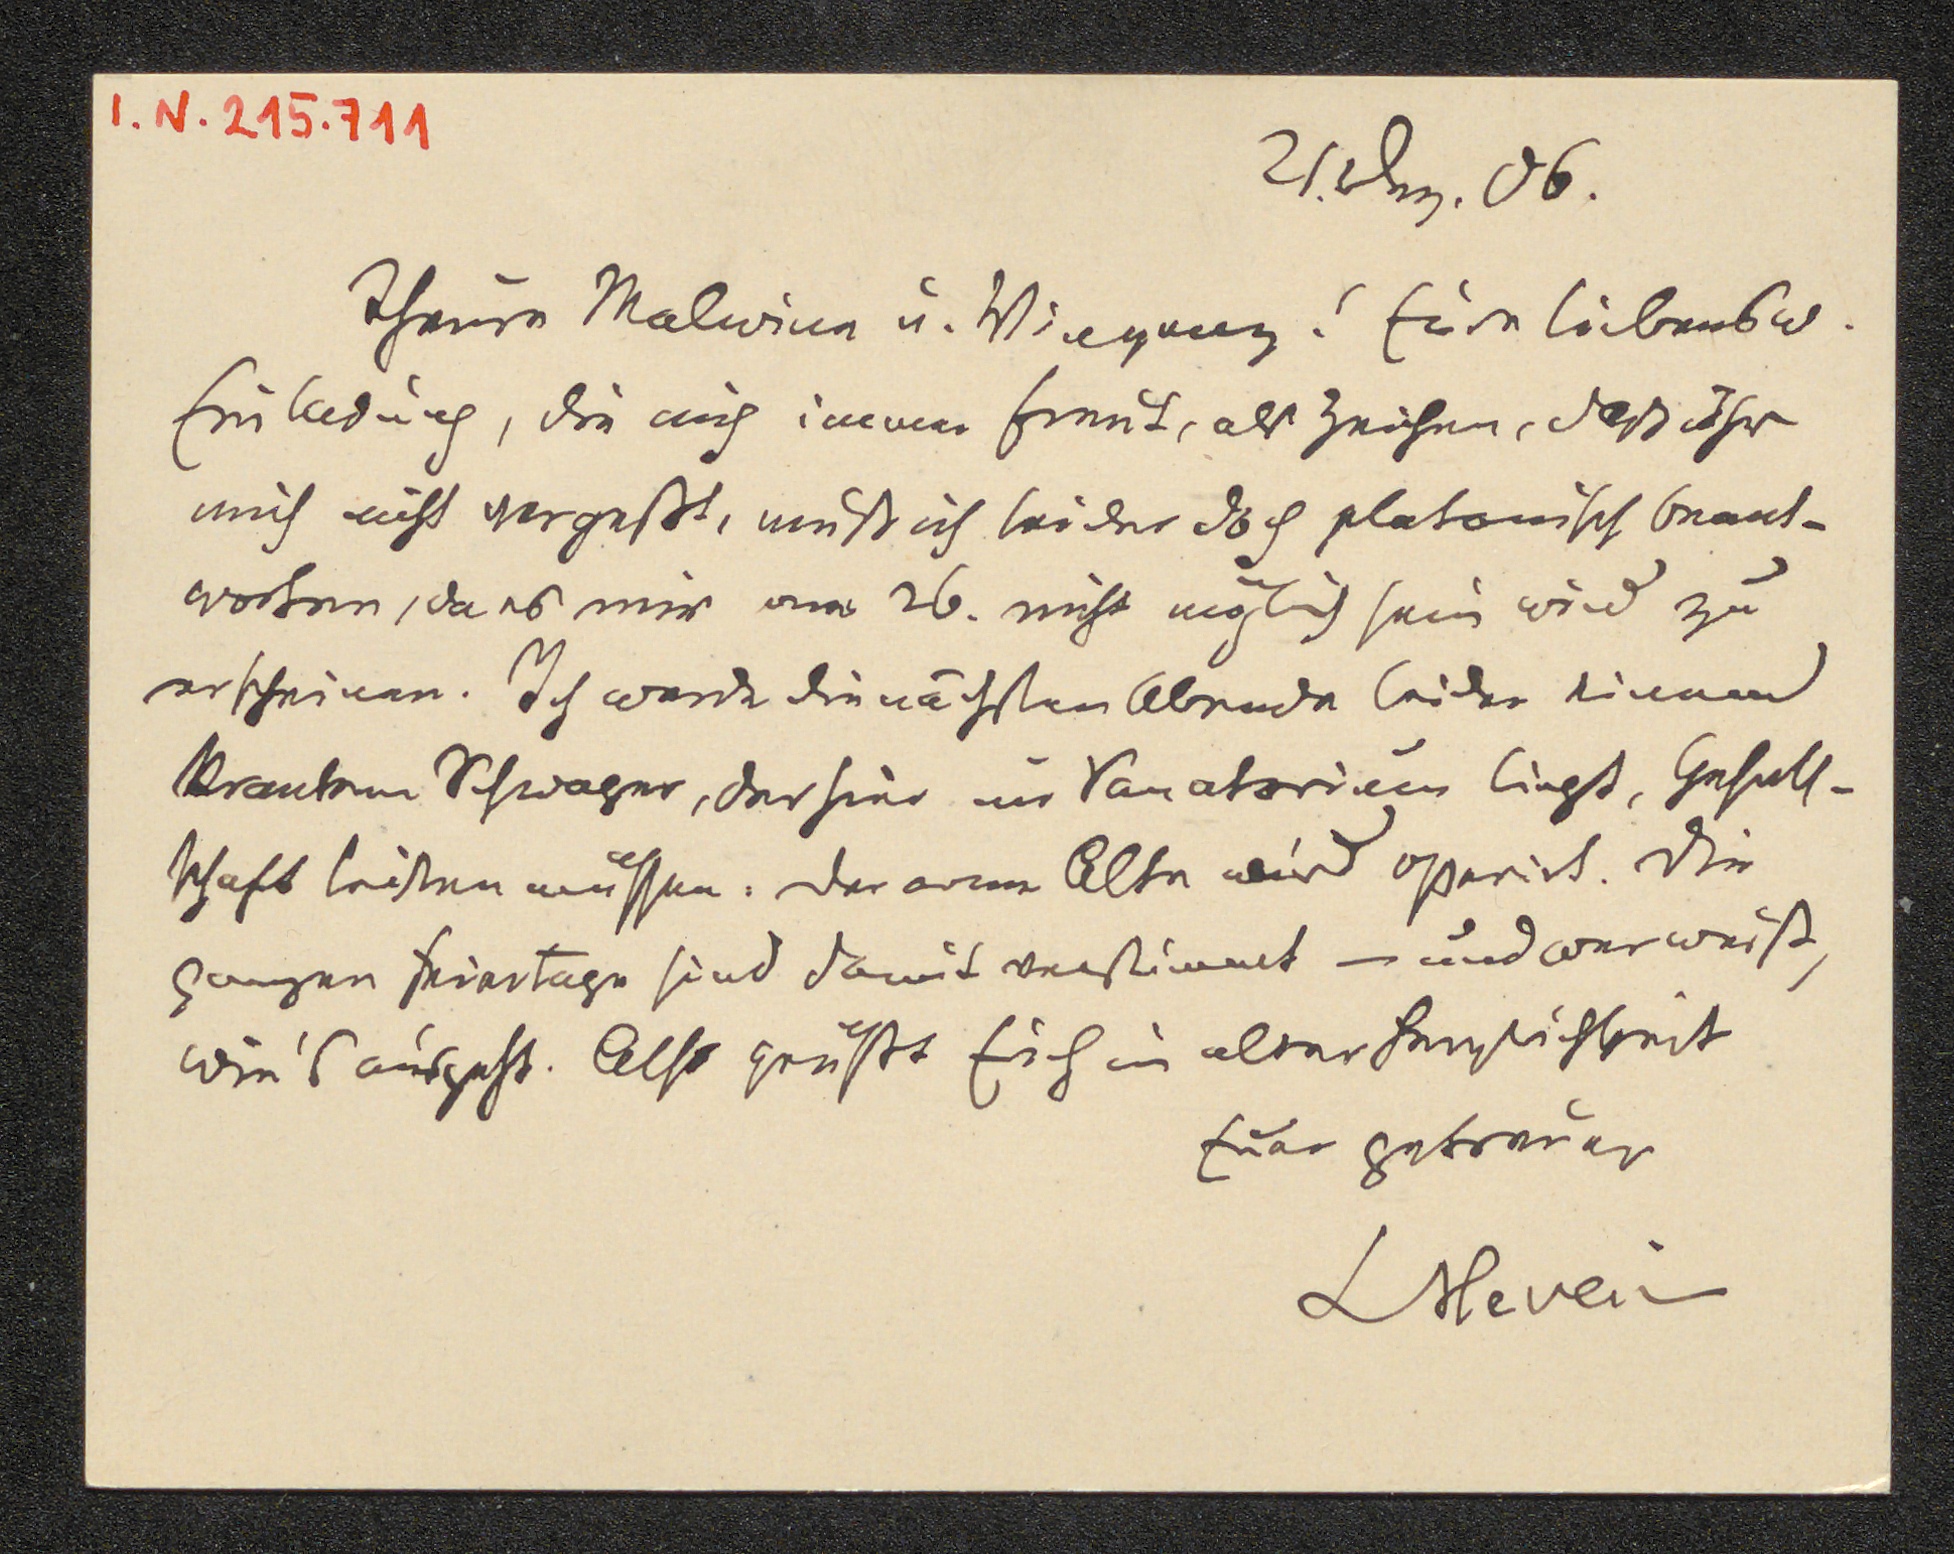 I. N. 215.711
21. Dez. 06.
Theure Malwine u. ! Eure liebensw.
Einladung, die mich immer freut, als Zeichen, daß ihr
mich nicht vergeßt, muß ich leider doch platonisch beant-
worten, da es mir am 26. nicht möglich sein wird zu
erscheinen. Ich werde die nächsten Abende leider einem
kranken Schwager, der hier im Sanatorium liegt, Gesell-
schaft leisten müssen. Der arme Alte wird operirt. Die
ganzen Feiertage sind damit verstimmt – und wer weiß,
wie's ausgeht. Also grüßt Euch in alter Herzlichkeit
Euer getreuer
L Hevesi